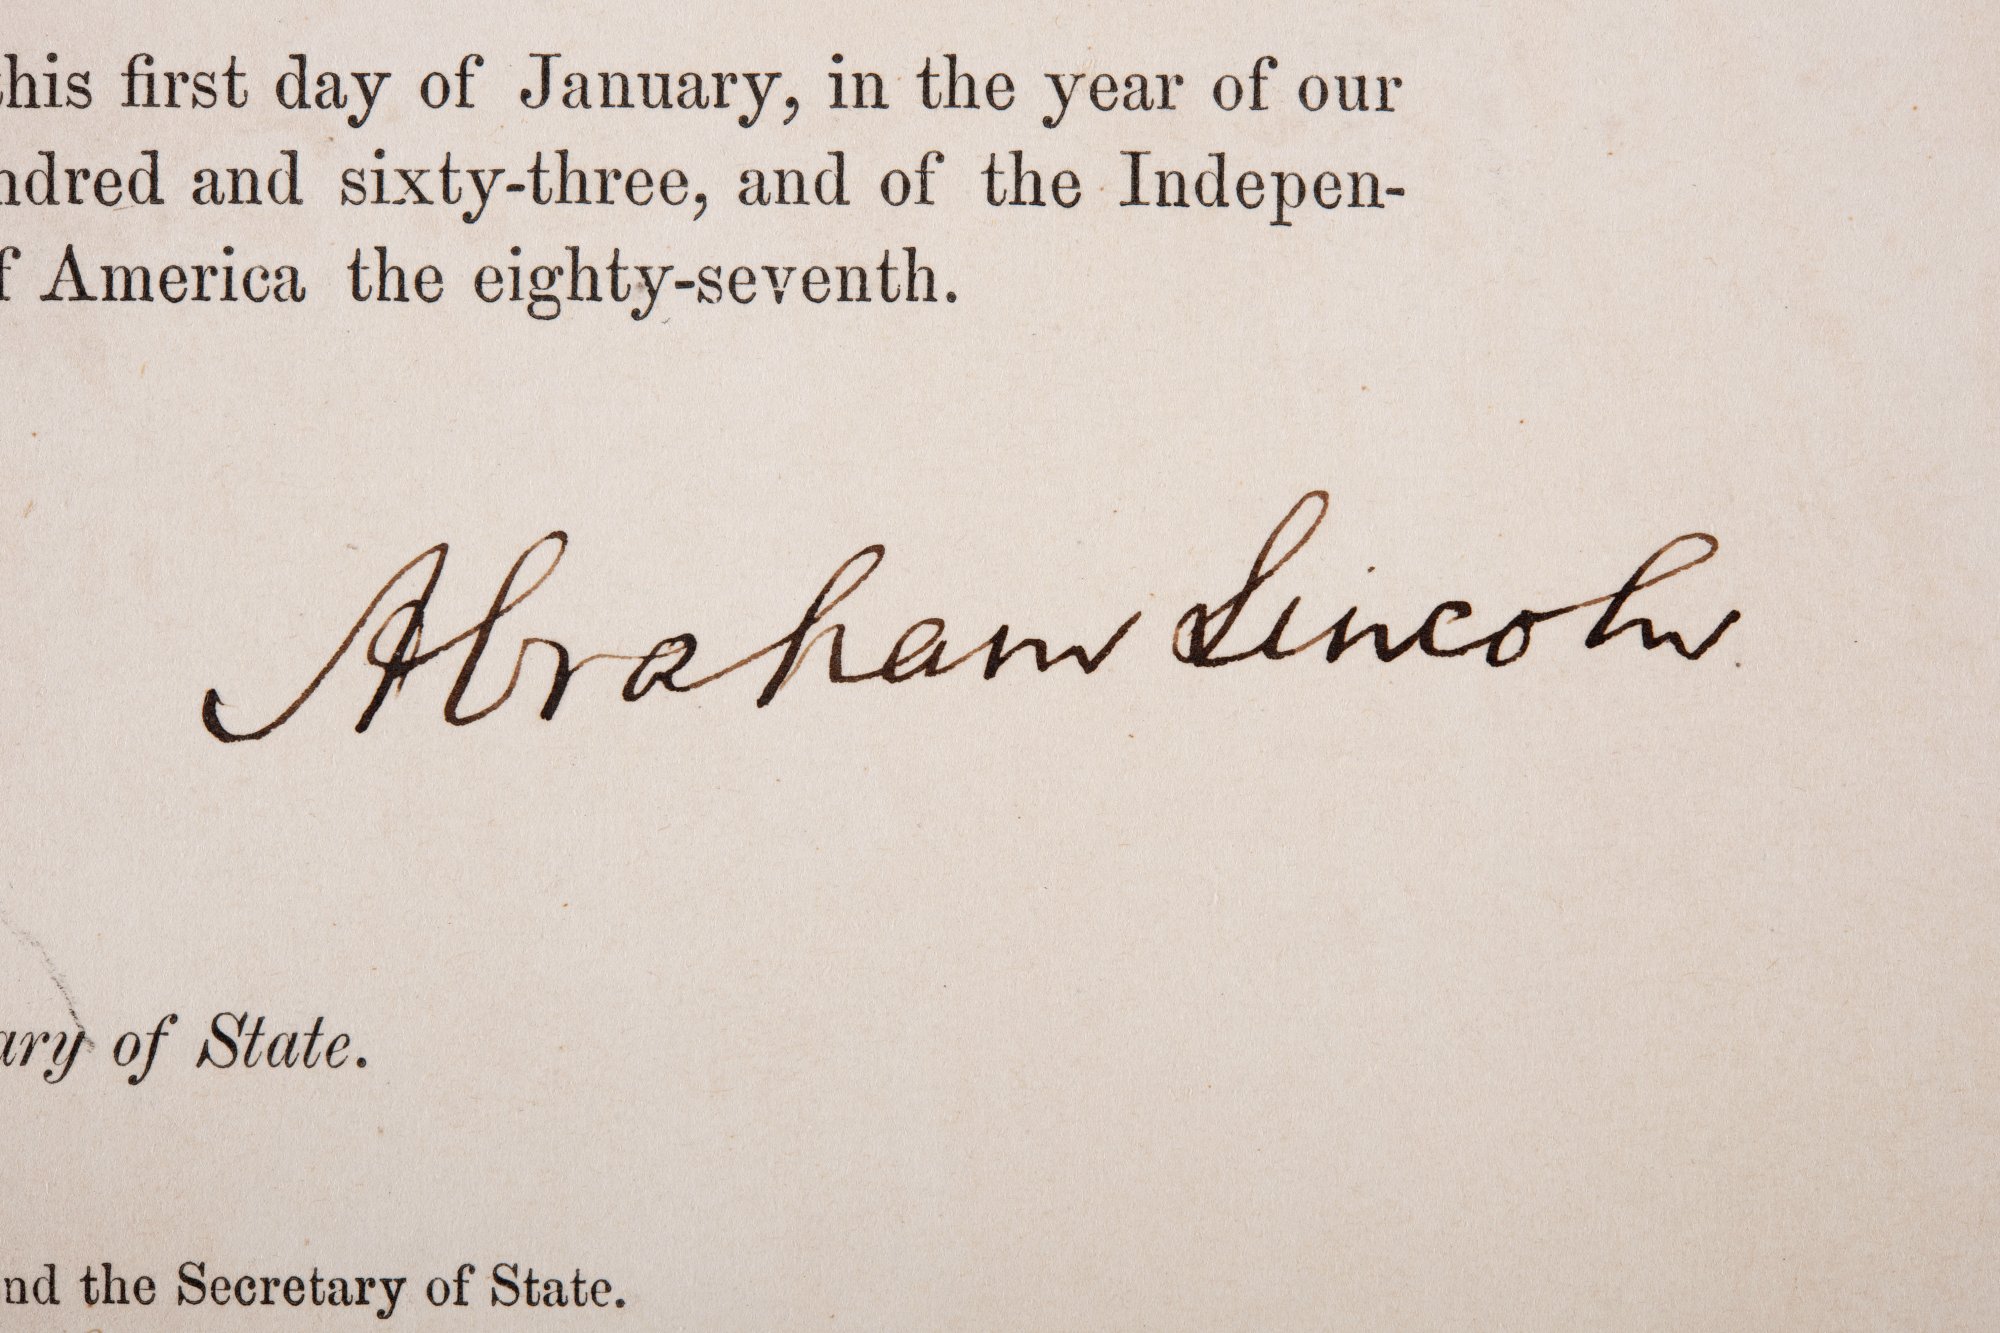 this first day of January, in the year of our
ndred and sixty-three, and of the Indepen-
f America the eighty-seventh.
Abraham Lincoln
ary of State.
nd the Secretary of State.